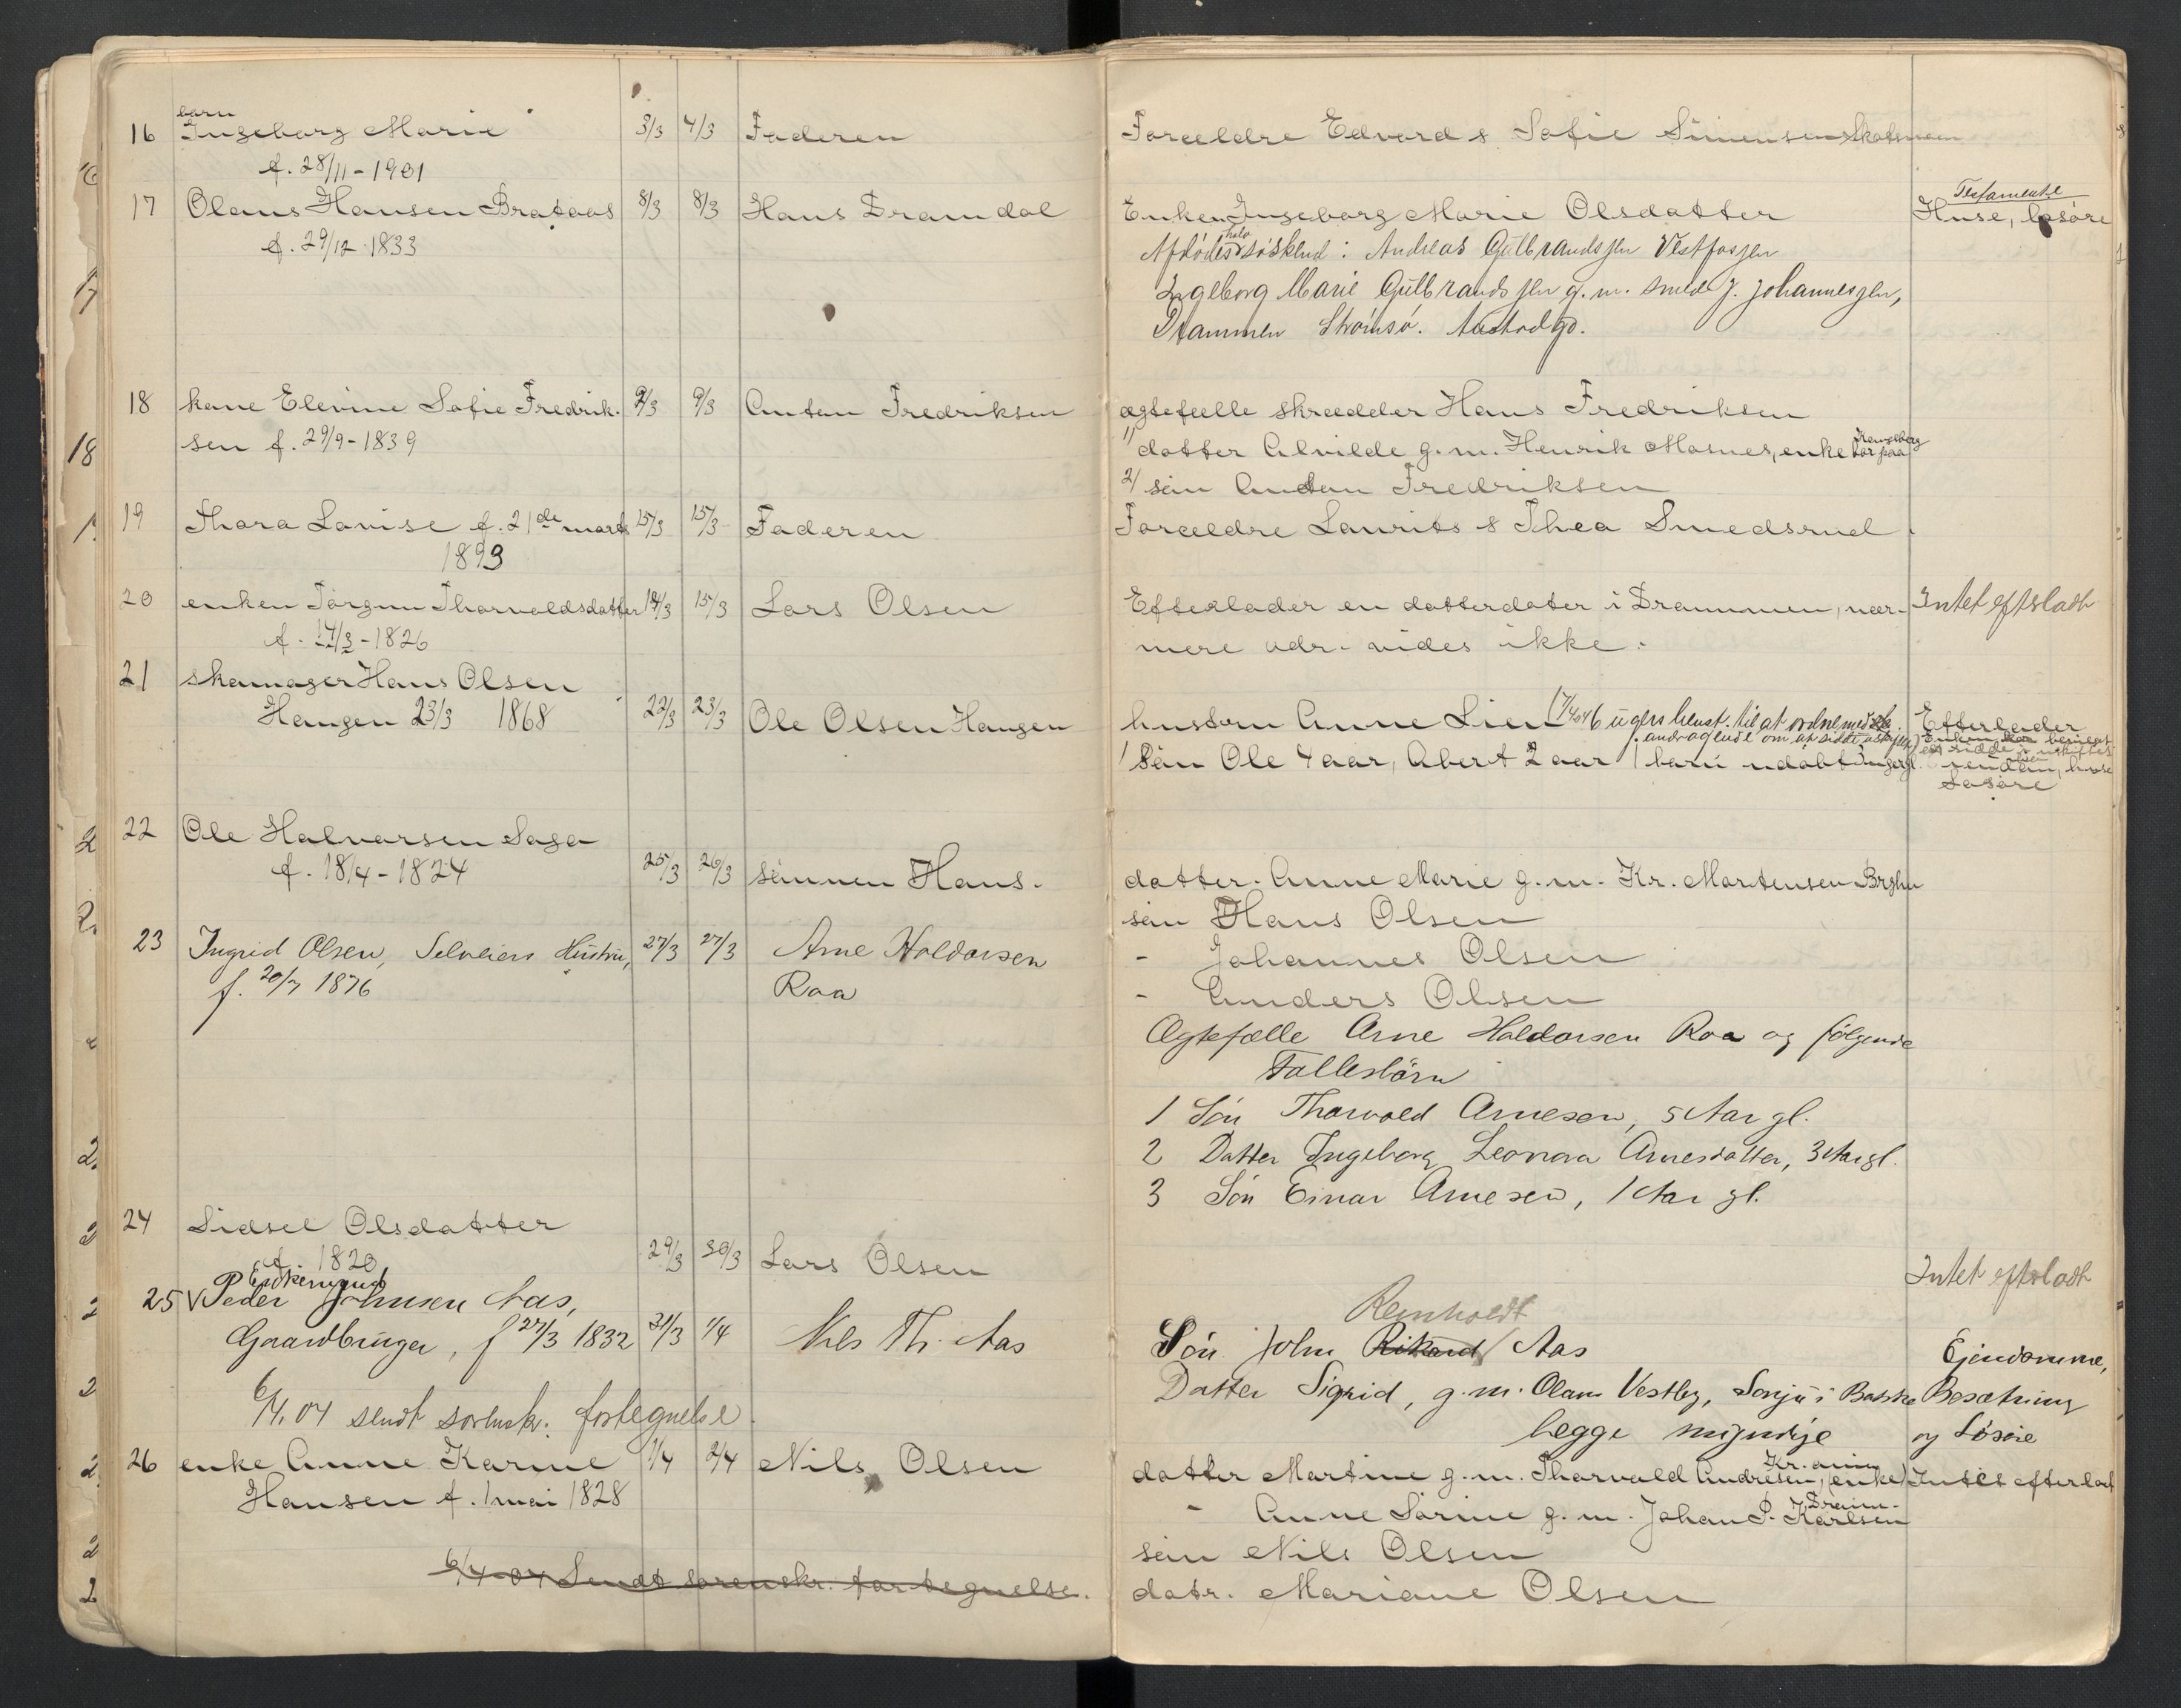 16 barn Ingeborg Marie 3/3 4/3 Faderen Forældre Edvard & Sofie Simensen
f. 28/11 - 1901
17 Olaus Hansen Brataas 8/3 8/3 Hans Dramdal Enken Ingeborg Marie Olsdatter Testamente Huse, løsøre
f. 29/12 1833 Afdødes halv søsklend: Andreas Gulbrandssen Vestfossen
Ingeborg Marie Gulbrandssen g.m. smed J. Johannessen,
Drammen Strömsö.
18 kone Elevine Sofie Fredrik- 9/3 9/3 Anton Fredriksen ægtefælle skrædder Hans Fredriksen
sen f. 29/9 - 1839 1/ datter Alvilde g.m. Henrik Mosnes, enke bor paa Kongsberg
2/ søn Anton Fredriksen
19 Thora Lovise f. 21de marts 15/3 15/3 Faderen Forældre Laurits & Thea Smedsrud
1893
20 enken Jørgine Thorvaldsdatter 14/3 15/3 Lars Olsen Efterlader en datterdater i Drammen, nær- Intet efterladt
f. 17/3 - 1826 mere adr. vides ikke.
21 skomager Hans Olsen
Haugen 23/3 1868 22/3 23/3 Ole Olsen Haugen hustru Anne Lien (7/4 04 6 ugers henst. til at ordne med Efterlader
andragende om at sidde uskiftet) Enken har besluttet at sidde i uskiftet
1 Søn Ole 4 aar, Abert 2 aar 1 barn udøbt eiendom, huse
Løsøre
22 Ole Halvorsen Saga
f. 18/4 - 1824 25/3 26/3 sønnen Hans. datter. Anne Marie g.m. Kr. Martensen
søn Hans Olsen
23 Ingrid Olsen, Selveiers Hustru, 27/3 27/3 Arne Haldorsen - Johannes Olsen
f. 20/7 1876 Roa - Anders Olsen
Ægtefælle Arne Haldorsen Roa og følgende
Fællesbörn
1 Sön Thorvald Arnesen, 5 Aar gl.
2 Datter Ingeborg Leonora Arnesdatter, 3 Aar gl.
3 Sön Einar Arnesen, 1 Aar gl.
24 Sidsel Olsdatter
f. 1820 29/3 30/3 Lars Olsen Intet efterladt
25 V Enkemand Peder Johnsen Aas, Reinholdt
Gaardbruger, f 27/3 1832 31/3 1/4 Nils Th. Aas Sön John Rikard Aas Ejendomme,
Datter Sigrid, g.m. Olaus Vestby, Besætning
6/4. 04 sendt sorensk. fortegnelse. begge myndige og Løsøre
26 enke Anne Karine 1/4 2/4 Nils Olsen datter Martine g.m. Thorvald Andresen, (enke) Kr.ania Intet efterladt
Hansen f. 1 mai 1828 - Anne Sørine g.m. Johan P. Karlsen Dram-
søn Nils Olsen
6/4-04 Sendt sorenskr. fortegnelse. datr. Mariane Olsen